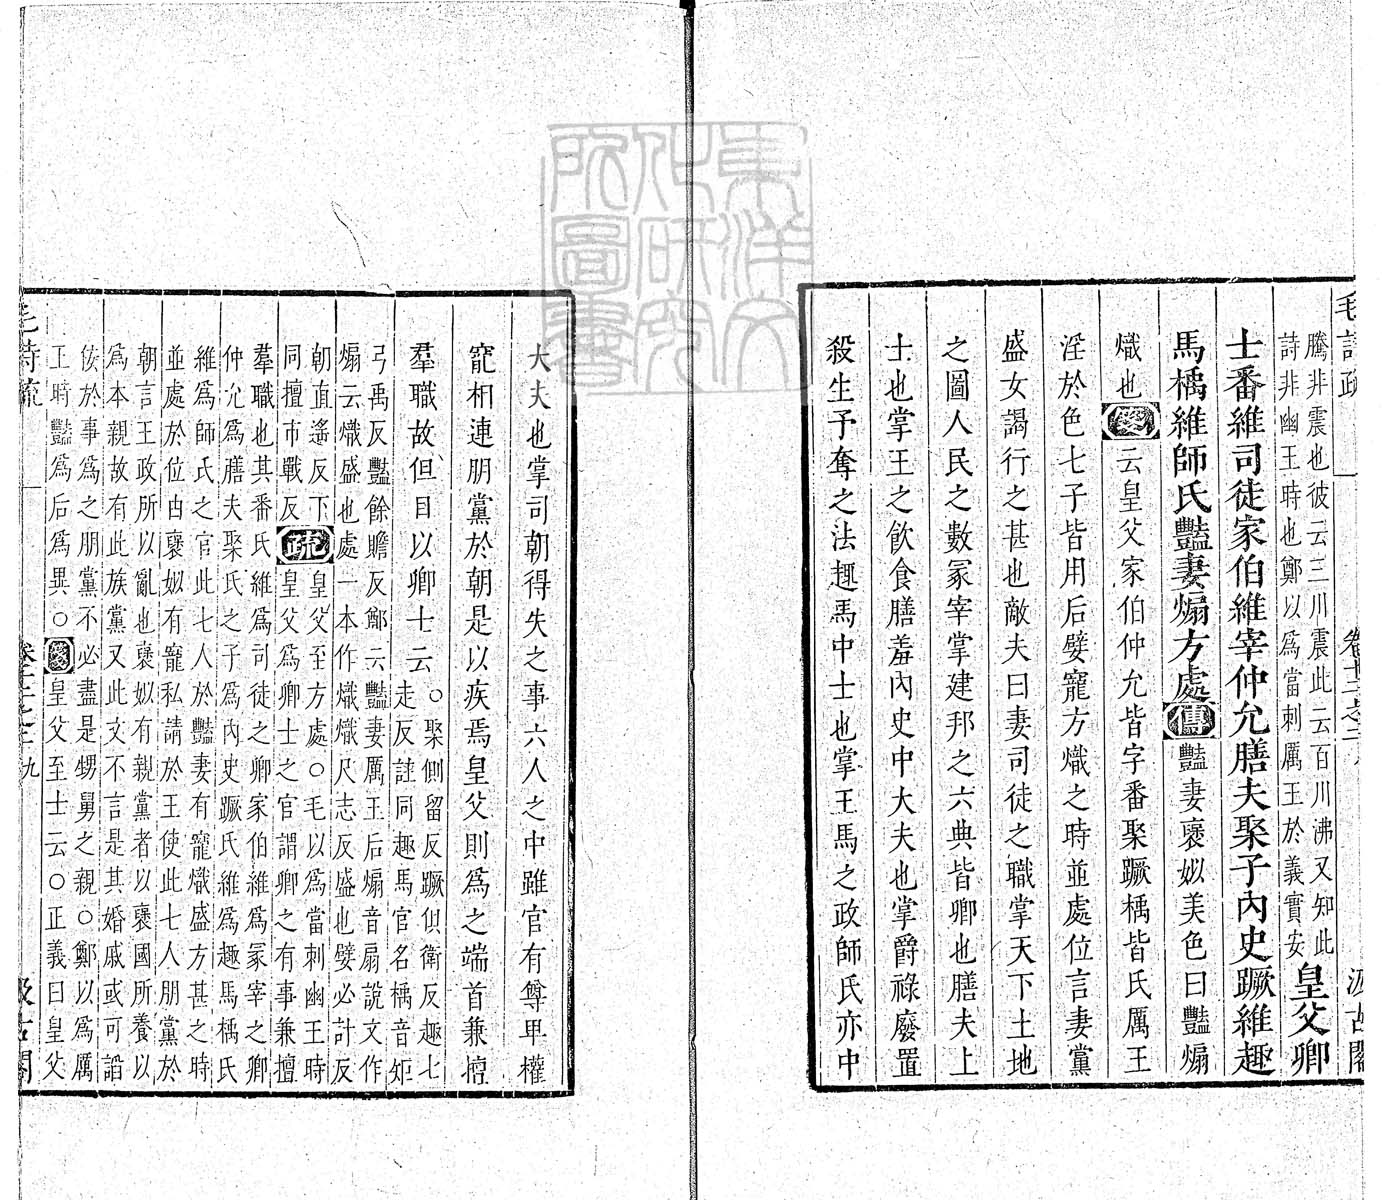 毛詩疏
卷十二之二
汲古閣
騰非震也彼云三川震此云百川沸又知此
詩非幽王時也鄭以爲當刺厲王於義實安
皇父卿
士番維司徒家伯維宰仲允膳夫棸子內史蹶維趣
馬楀維師氏豔妻煽方處傳豔妻襃姒美色曰豔煽
熾也箋云皇父家伯仲允皆字番棸蹶楀皆氏厲王
淫於色七子皆用后嬖寵方熾之時並處位言妻黨
盛女謁行之甚也敵夫曰妻司徒之職掌天下土地
之圖人民之數冢宰掌建邦之六典皆卿也膳夫上
士也掌王之飲食膳羞內史中大夫也掌爵祿廢置
殺生予奪之法趣馬中士也掌王馬之政師氏亦中
大夫也掌司朝得失之事六人之中雖官有尊卑權
寵相連朋黨於朝是以疾焉皇父則爲之端首兼擅
羣職故但目以卿士云
○棸側留反蹶俱衛反趣七
走反註同趣馬官名楀音矩
弓禹反豔餘贍反鄭云豔妻厲王后煽音扇說文作
煽云熾盛也處一本作熾熾尺志反盛也嬖必計反
朝直遙反下
同擅市戰反
疏
皇父至方處○毛以爲當刺幽王時
皇父爲卿士之官謂卿之有事兼擅
羣職也其番氏維爲司徒之卿家伯維爲冢宰之卿
仲允爲膳夫棸氏之子爲內史蹶氏維爲趣馬楀氏
維爲師氏之官此七人於豔妻有寵熾盛方甚之時
並處於位由襃姒有寵私請於王使此七人朋黨於
朝言王政所以亂也襃姒有親黨者以襃國所養以
爲本親故有此族黨又此文不言是其婚戚或可諂
佞於事爲之朋黨不必盡是甥舅之親○鄭以爲厲
王時豔爲后爲異○箋皇父至士云○正義曰皇父
毛詩疏
卷十二之二
九
汲古閣
東洋文
化研究
所圖書